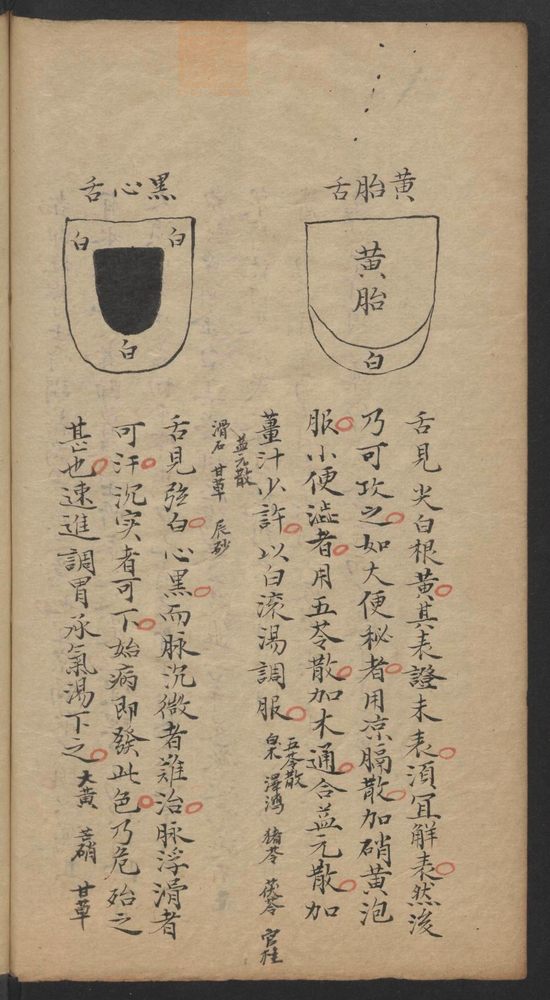 黃胎舌
黃胎
白
舌見尖白根黃其表證未表須宜解表然後
乃可攻之如大便秘者用凉膈散加硝黃泡
服小便澁者用五苓散加木通合益元散加
薑汁少許以白滚湯調服
五苓散
白朮 澤瀉 猪苓 茯苓 官桂
益元散
滑石 甘草 辰砂
黑心舌
白
白
白
舌見弦白心黑而脉沉微者難治脉浮滑者
可汗沉实者可下始病即發此色乃危殆之
甚也速進調胃承氣湯下之
大黃 芒硝 甘草